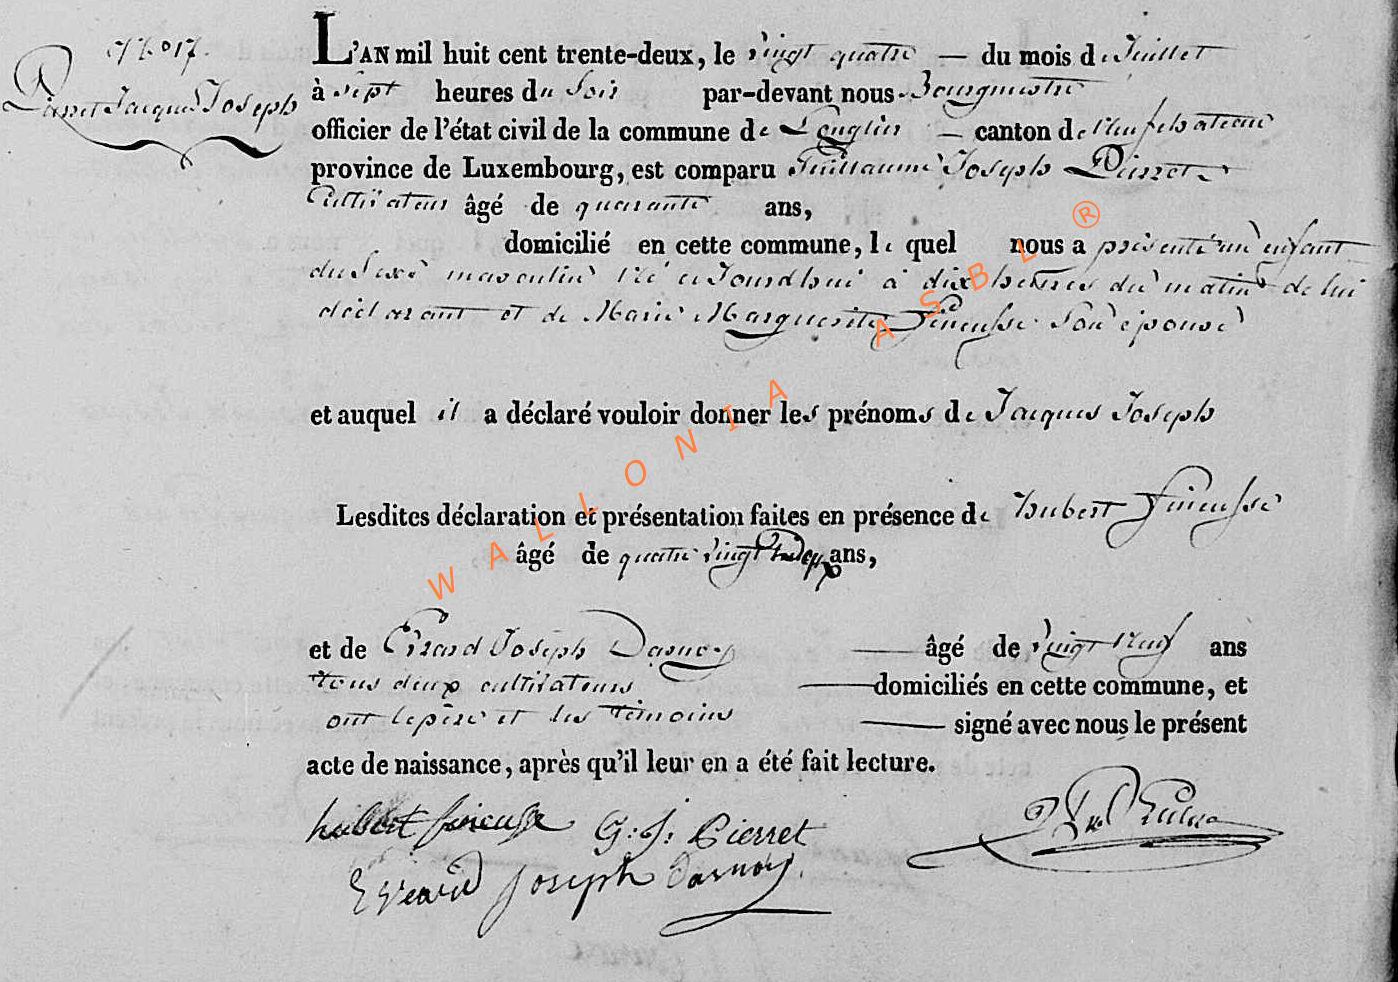 N° 17.
Pierret Jacques Joseph
L'AN mil huit cent trente-deux, le vingt quatre — du mois de Juillet
à sept heures du soir par-devant nous Bourgmestre
officier de l'état civil de la commune de Longlier — canton de Neufchateau
province de Luxembourg, est comparu Guillaume Joseph Pierret
Cultivateur âgé de quarante ans,
domicilié en cette commune, le quel nous a présenté un enfant
du sexe masculin né aujourdhui à dix heures du matin de lui
déclarant et de Marie Marguerite Fineusse son épouse
et auquel il a déclaré vouloir donner les prénoms de Jacques Joseph
Lesdites déclaration et présentation faites en présence de hubert Fineusse
âgé de quatre vingt ans,
et de Evrard Joseph Darnoy — âgé de vingt neuf ans
tous deux cultivateurs — domiciliés en cette commune, et
ont le père et les témoins — signé avec nous le présent
acte de naissance, après qu'il leur en a été fait lecture.
hubert fineusse G: J: Pierret
Evrard Joseph Darnoy.
WALLONIA ASBL ®